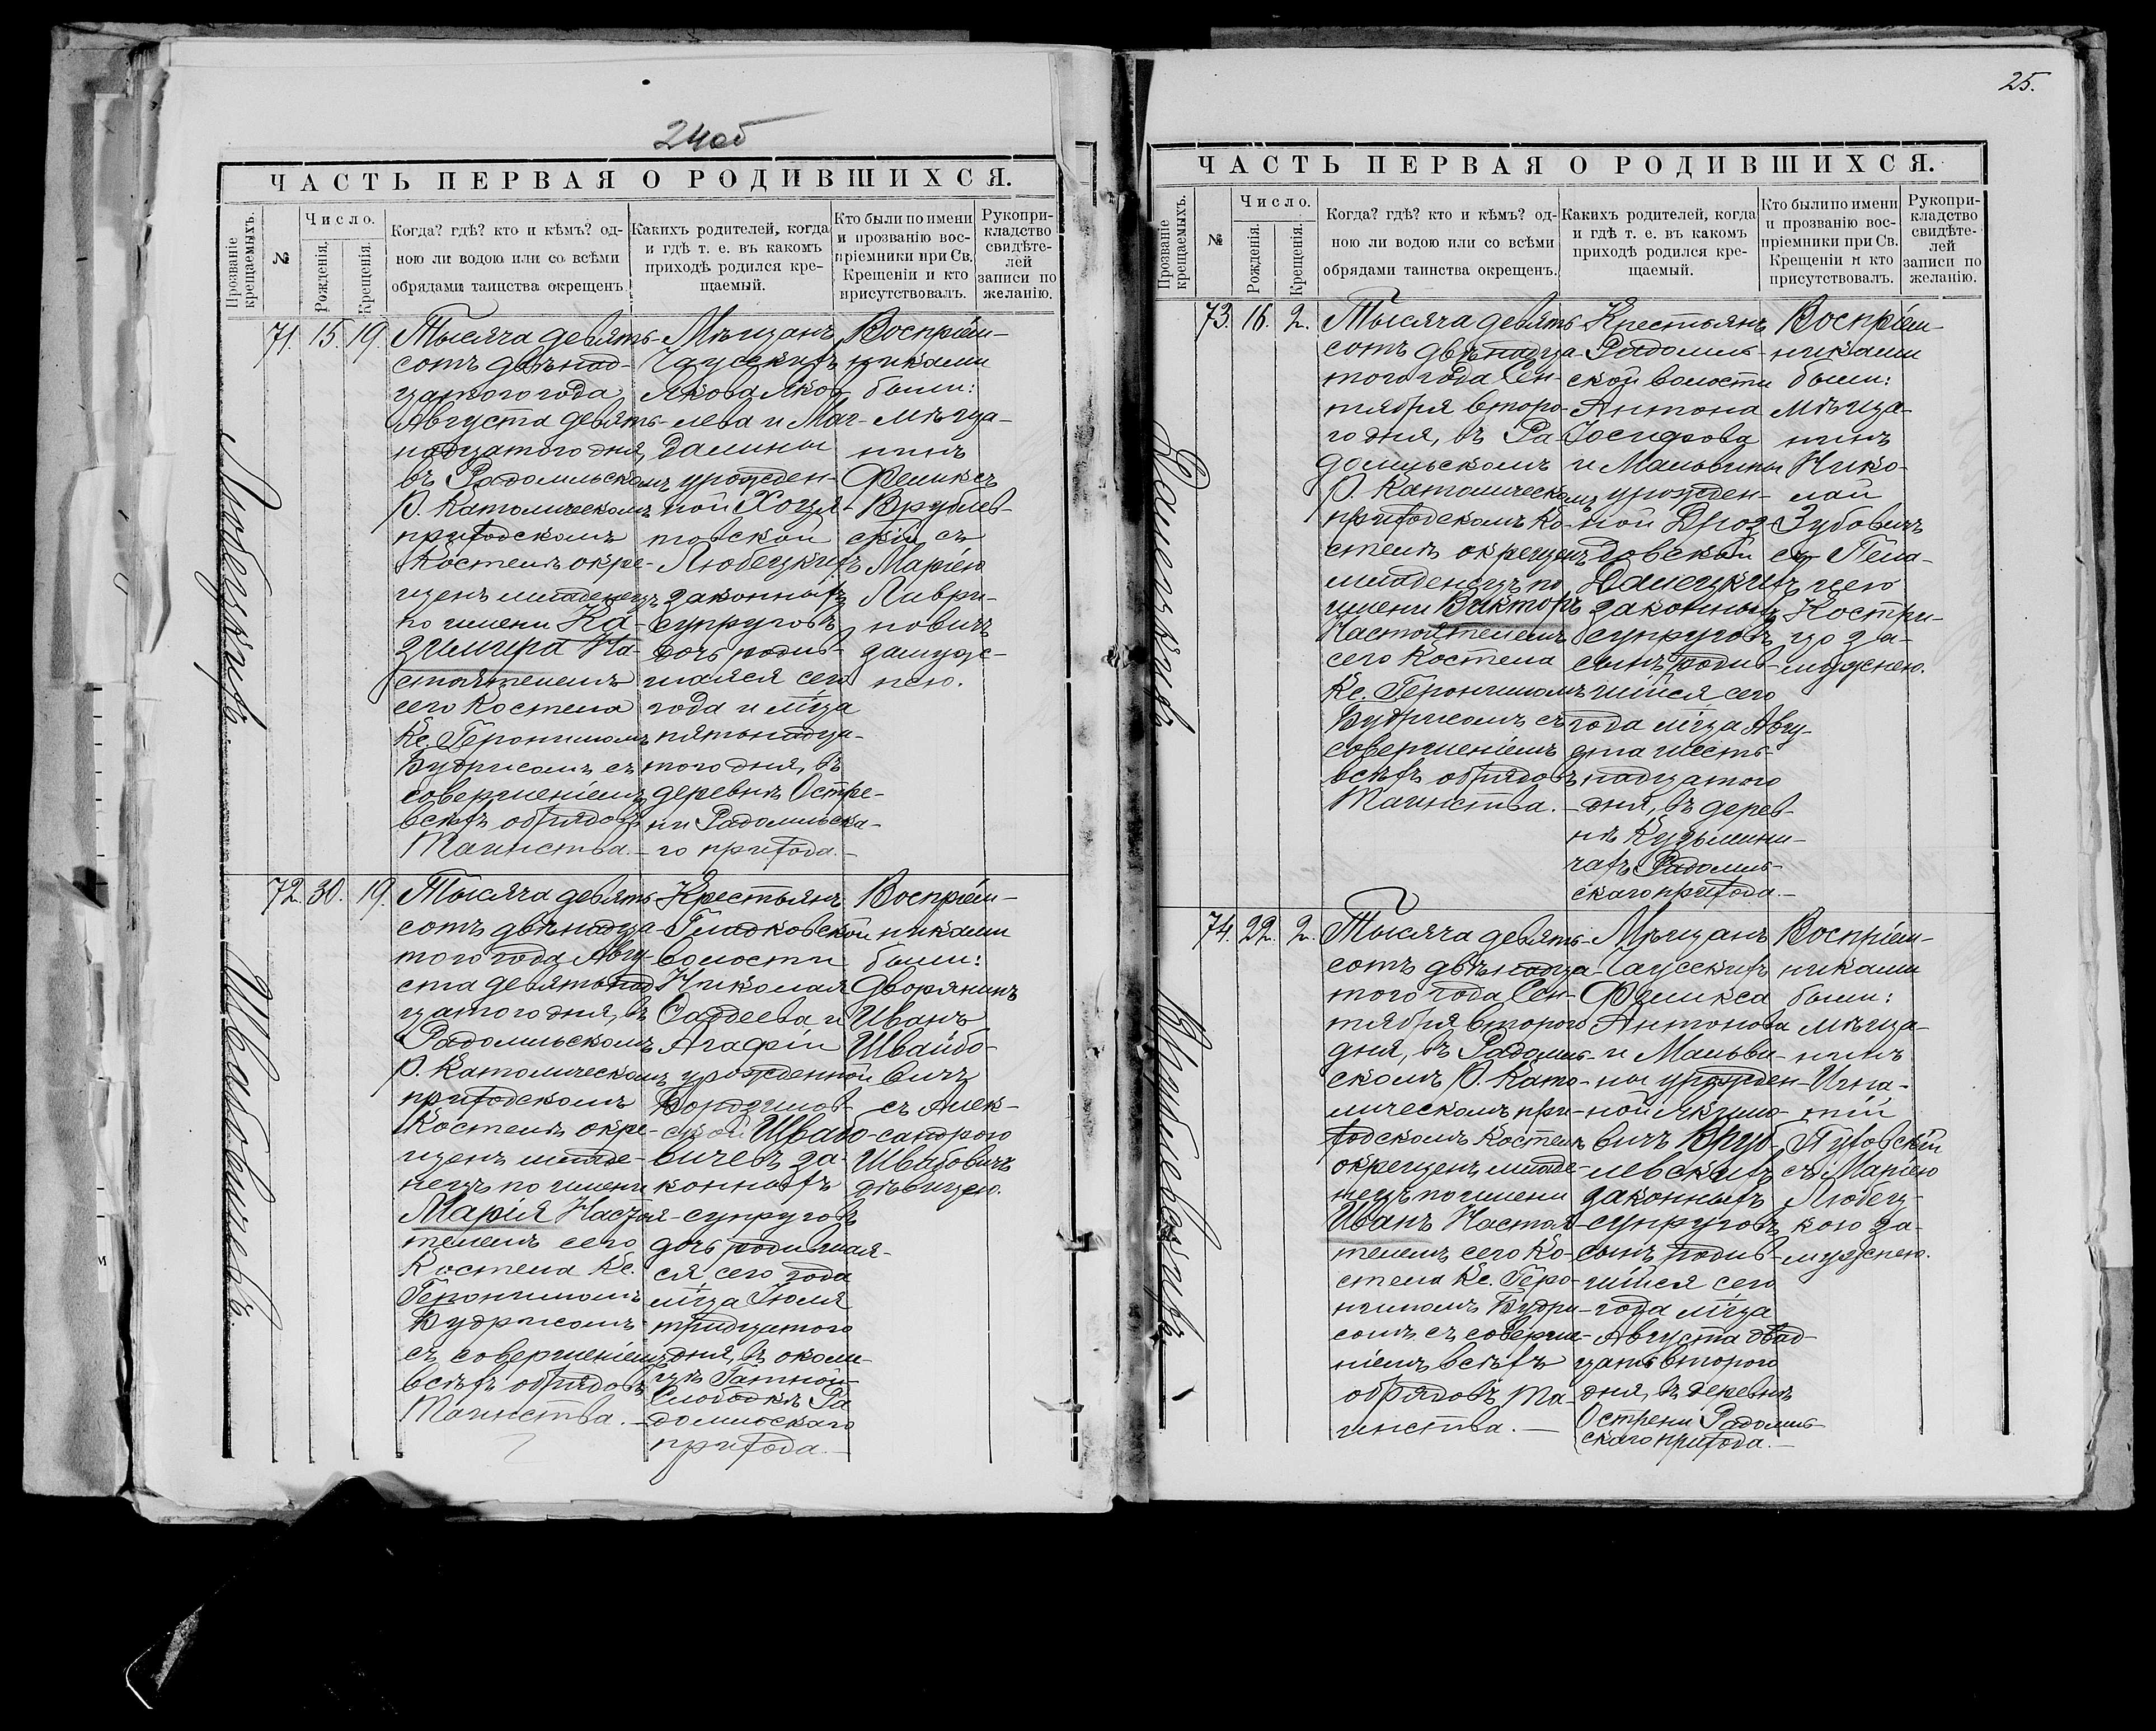 24об
ЧАСТЬ ПЕРВАЯ О РОДИВШИХСЯ.
Прозваніе крещаемыхъ.
№
Число.
Рожденія.
Крещенія.
Когда? гдѣ? кто и кѣмъ? од-
ною ли водою или со всѣми
обрядами таинства окрещенъ.
Какихъ родителей, когда
и гдѣ т. е. въ какомъ
приходѣ родился кре-
щаемый.
Кто были по имени
и прозванію вос-
пріемники при Св.
Крещеніи и кто
присутствовалъ.
Рукопри-
кладство
свидѣте-
лей
записи по
желанію.
Любецкихъ
71. 15. 19.
Тысяча девять-
сотъ двѣнад-
цатого года
Августа девять-
надцатого дня,
въ Радомльскомъ
р. Католическомъ
приходскомъ
Костелѣ окре-
щенъ младенецъ
по имени Ка-
зимира На-
стоятелемъ
сего Костела
Кс. Геронимомъ
Будрисомъ съ
совершеніемъ
всѣхъ обрядовъ
Таинства.—
Мѣщанъ
Чаусскихъ
Якова Яков-
лева и Маг-
далины
урожден-
ной Хоцят-
товской
Любецкихъ
законныхъ
супруговъ
дочь родив-
шаяся сего
года и мѣца
пятонадца-
того дня, въ
деревнѣ Остре-
ни Радомльска-
го прихода.—
Воспріем-
никами
были:
мѣща-
нинъ
Феликсъ
Врублев-
скій съ
Маріею
Лаври-
новичъ
замуж-
нею.
Швабовичевъ.
72. 30. 19.
Тысяча девять-
сотъ двѣнадца-
того года Авгу-
ста девятьнад-
цатого дня, въ
Радомльскомъ
р. Католическомъ
приходскомъ
Костелѣ окре-
щенъ младе-
нецъ по имени
Марія Настоя-
телемъ сего
Костела Кс.
Геронимомъ
Будрисомъ
съ совершеніемъ
всѣхъ обрядовъ
Таинства.—
Крестьянъ
Гладковской
волости
Николая
Фаддеева и
Агафіи
урожденной
ской Швабо-
вичевъ за-
конныхъ
супруговъ
дочь родившая-
ся сего года
мѣца Іюля
тридцатого
дня, въ околи-
цѣ Гатной
Слободкѣ Ра-
домльскаго
прихода.—
Воспріем-
никами
были:
дворянинъ
Иванъ
Швайбо-
вичъ
съ Алек-
сандрою
Швабовичъ
дѣвицею.
25.
ЧАСТЬ ПЕРВАЯ О РОДИВШИХСЯ.
Прозваніе крещаемыхъ.
№
Число.
Рожденія.
Крещенія.
Когда? гдѣ? кто и кѣмъ? од-
ною ли водою или со всѣми
обрядами таинства окрещенъ.
Какихъ родителей, когда
и гдѣ т. е. въ какомъ
приходѣ родился кре-
щаемый.
Кто были по имени
и прозванію вос-
пріемники при Св.
Крещеніи и кто
присутствовалъ.
Рукопри-
кладство
свидѣте-
лей
записи по
желанію.
Данецкихъ
73. 16. 2.
Тысяча девять-
сотъ двѣнадца-
того года Сен-
тября второ-
го дня, въ Ра-
домльскомъ
р. Католическомъ
приходскомъ Ко-
стелѣ окрещенъ
младенецъ по
имени Викторъ
Настоятелемъ
сего Костела
Кс. Геронимомъ
Будрисомъ съ
совершеніемъ
всѣхъ обрядовъ
Таинства.—
Крестьянъ
Радомль-
ской волости
Антона
Іосифова
и Мальвины
урожден-
ной Дроз-
довской
Данецкихъ
законныхъ
супруговъ
сынъ родив-
шійся сего
года мѣца Авгу-
ста шесть-
надцатого
дня, въ дерев-
нѣ Кузьмини-
чахъ Радомль-
скаго прихода.—
Воспріем-
никами
были:
мѣща-
нинъ
Нико-
лай
Зубовичъ
съ Пела-
геею
Костри-
цо за-
мужнею.
Врублевскихъ
74. 22. 2.
Тысяча девять-
сотъ двѣнадца-
того года Сен-
тября второго
дня, въ Радомль-
скомъ р. Като-
лическомъ при-
ходскомъ Костелѣ
окрещенъ младе-
нецъ по имени
Иванъ Настоя-
телемъ сего Ко-
стела Кс. Геро-
нимомъ Будри-
сомъ съ соверше-
ніемъ всѣхъ
обрядовъ Та-
инства.—
Мѣщанъ
Чаусскихъ
Феликса
Антонова
и Мальви-
ны урожден-
ной Якимо-
вичъ Вруб-
левскихъ
законныхъ
супруговъ
сынъ родив-
шійся сего
года мѣца
Августа двад-
цать второго
дня, въ деревнѣ
Острени Радомль-
скаго прихода.—
Воспріем-
никами
были:
мѣща-
нинъ
Игна-
тій
Пуховскій
съ Маріею
Любец-
кою за-
мужнею.